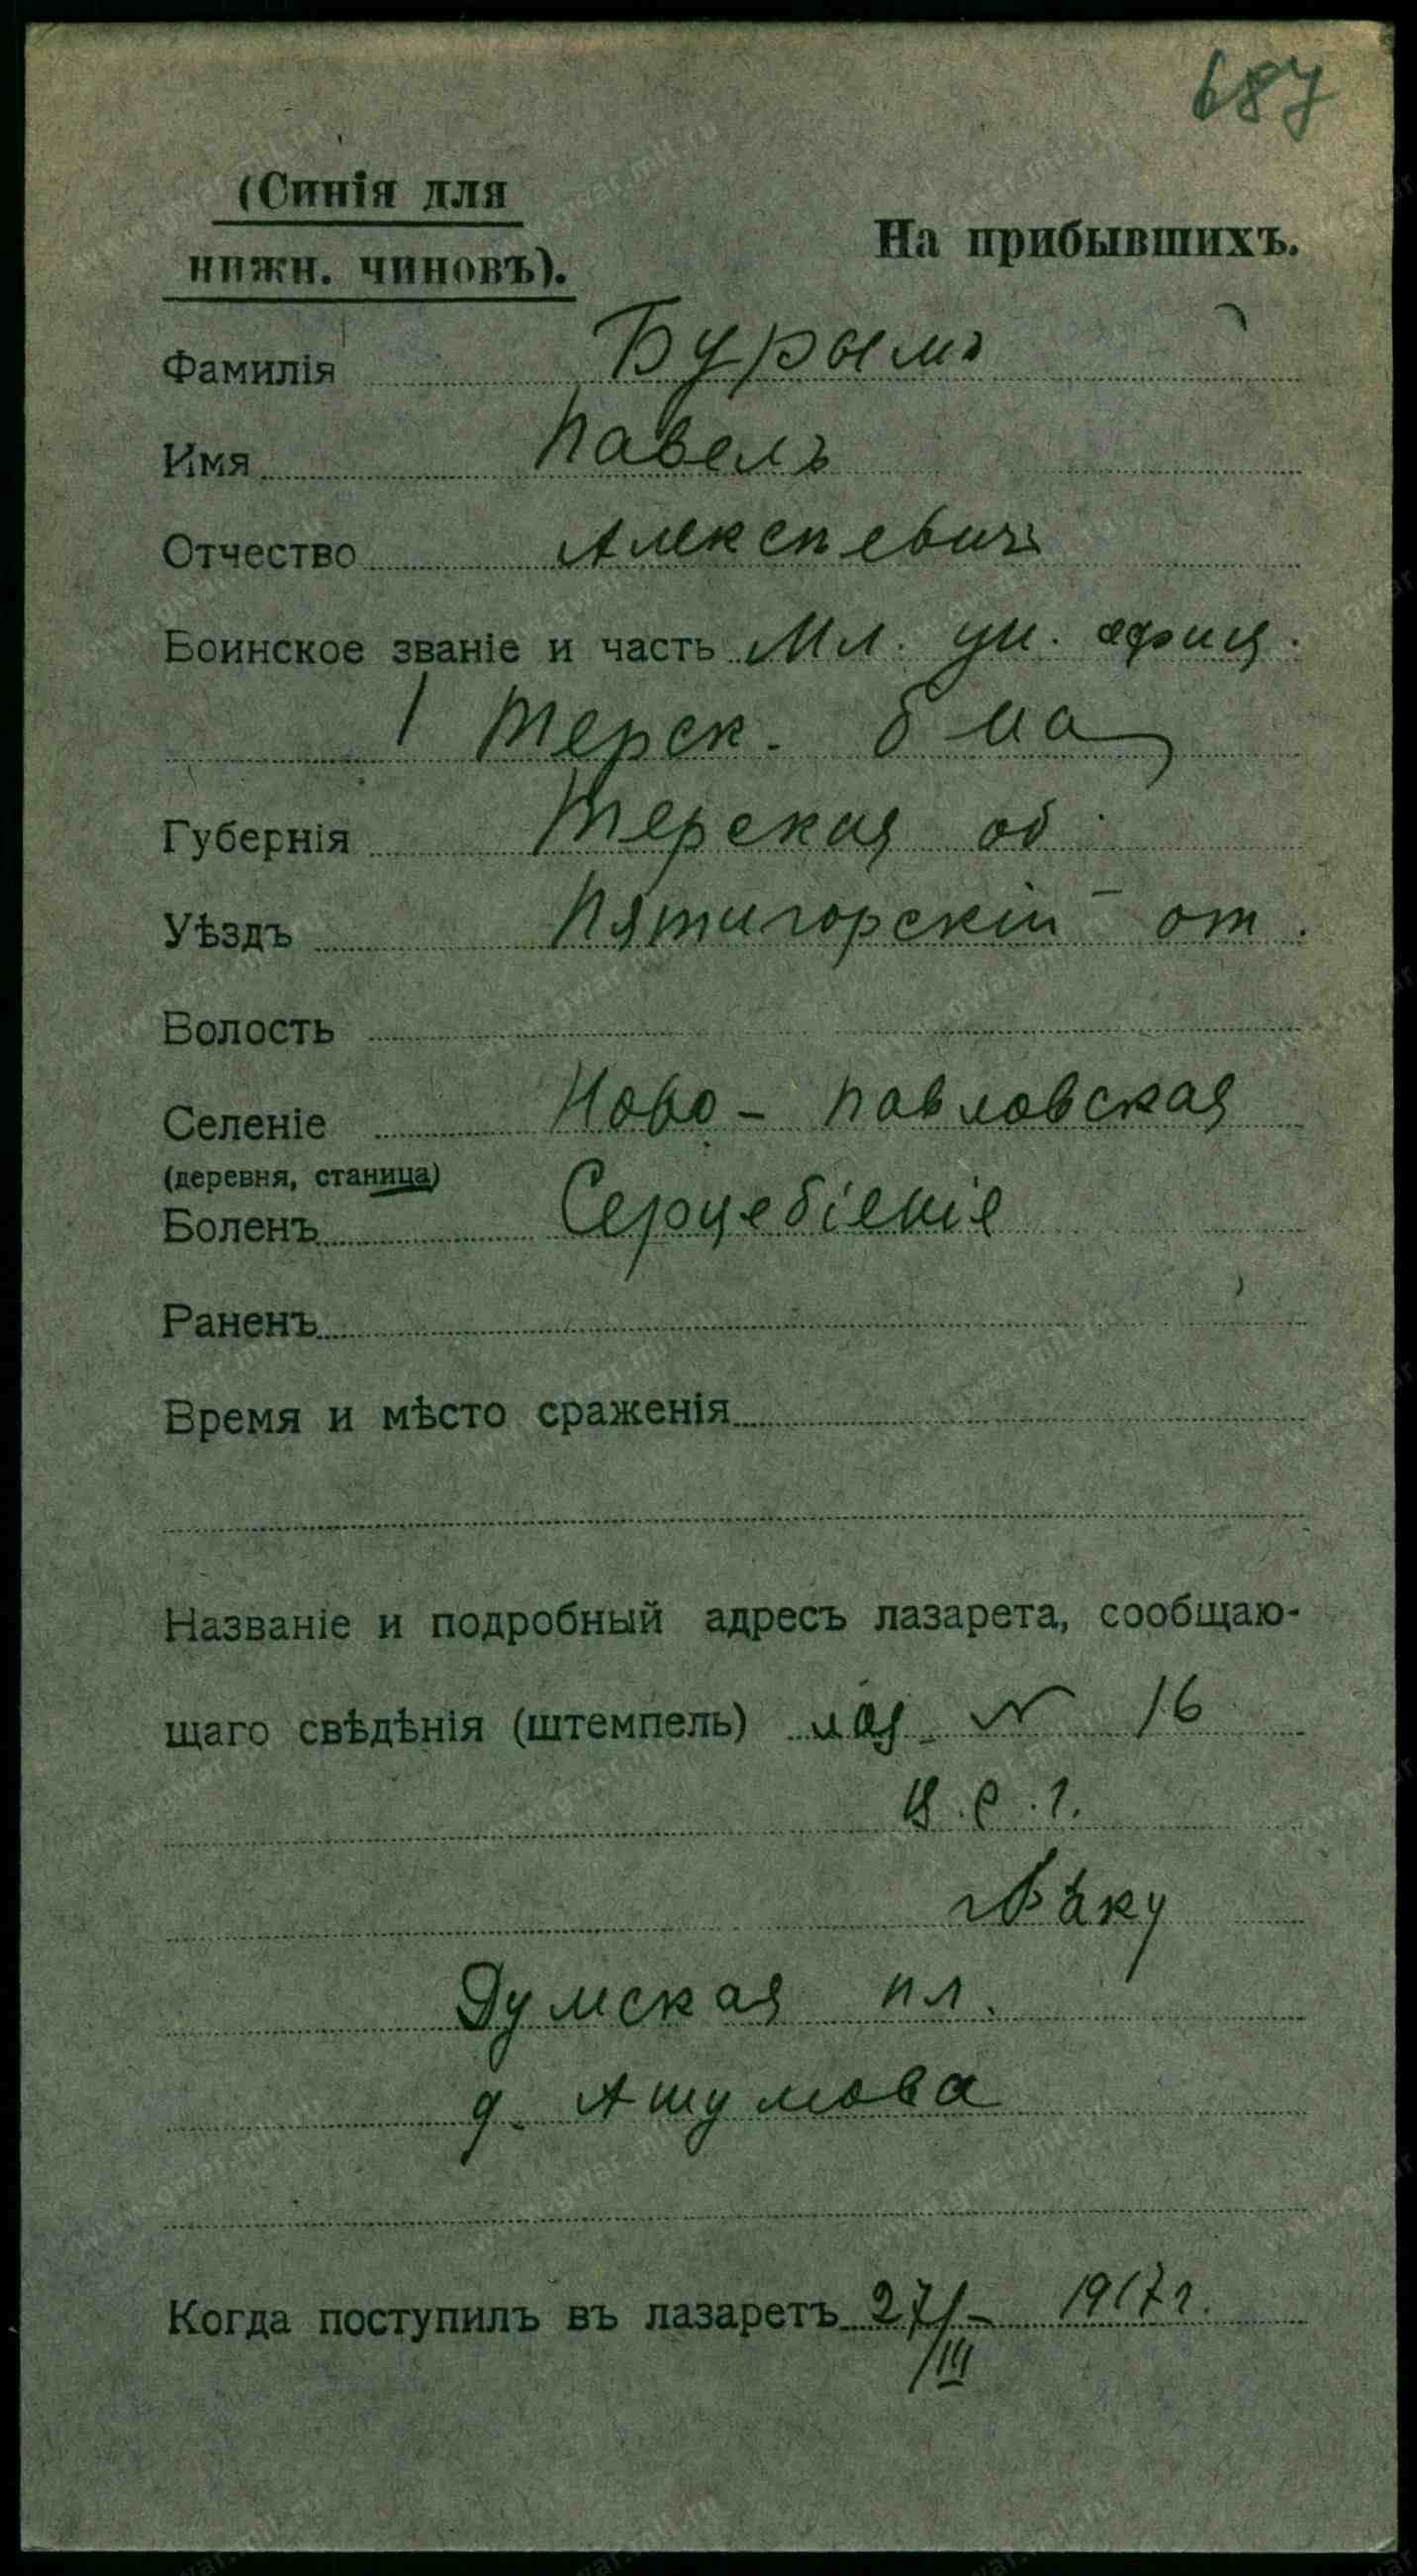 687
(Синія для
нижн. чиновъ).
На прибывшихъ.
Фамилія Бурымъ
Имя Павелъ
Отчество Алексѣевичъ
Воинское званіе и часть Мл. ун. офиц.
1 Терск. б на
Губернія Терская об.
Уѣздъ Пятигорскій от.
Волость
Селеніе Ново-Павловская
(деревня, станица)
Боленъ Серцебіеніе
Раненъ
Время и мѣсто сраженія
Названіе и подробный адресъ лазарета, сообщаю-
щаго свѣдѣнія (штемпель) лаз. № 16
В.С.Г.
г Баку
Думская пл.
д. Ашумова
Когда поступилъ въ лазаретъ 27/III - 1917 г.